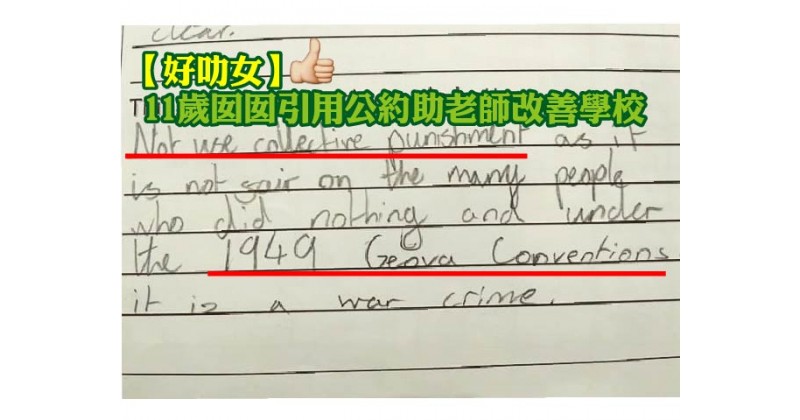 clear.
【好叻女】
11歲囡囡引用公約助老師改善學校
T
Not use collective punishment as it
is not fair on the many people
who did nothing and under
the 1949 Geova Conventions
it is a war crime.